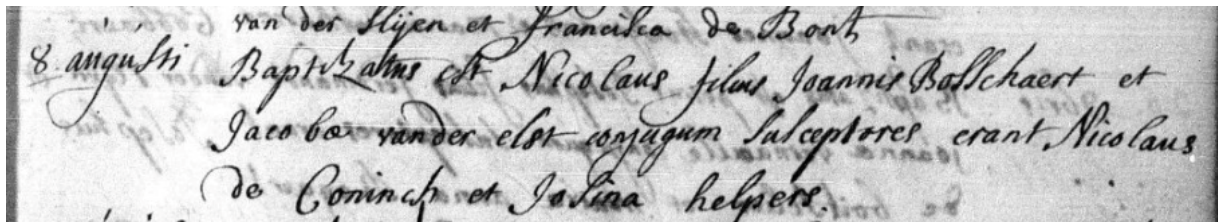 van der Slijen et Francisca de Bont
8 augusti Baptizatus est Nicolaus filius Joannis Bosschaert et
Jacobæ vander elst conjugum susceptores erant Nicolaus
de Coninch et Josina helpers.